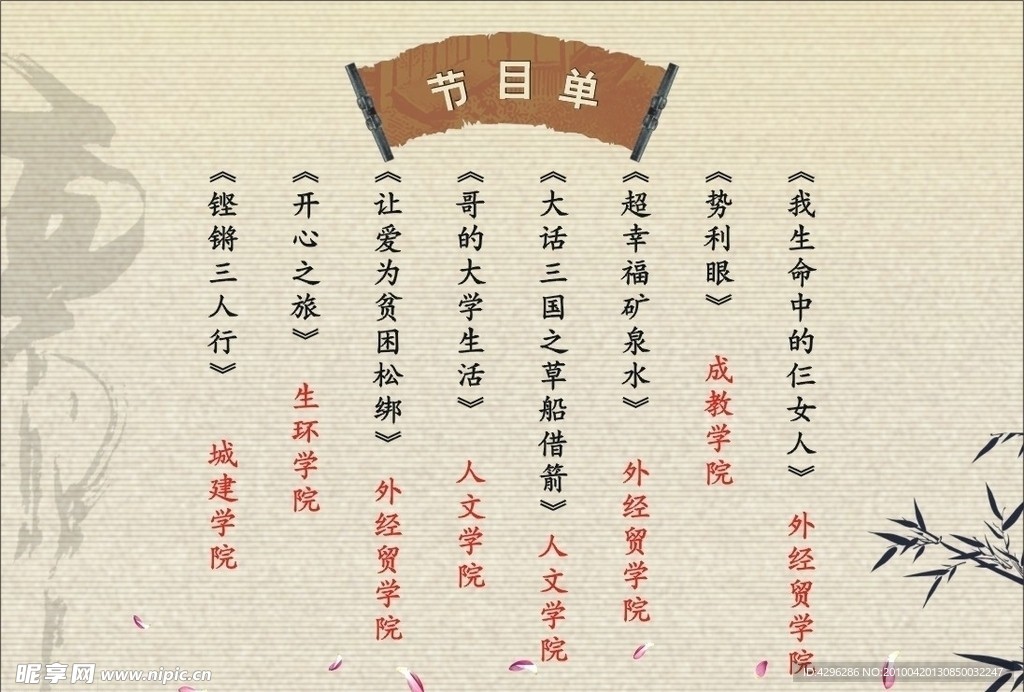 节目单
《我生命中的仨女人》 外经贸学院
《势利眼》 成教学院
《超幸福矿泉水》 外经贸学院
《大话三国之草船借箭》 人文学院
《哥的大学生活》 人文学院
《让爱为贫困松绑》 外经贸学院
《开心之旅》 生环学院
《铿锵三人行》 城建学院
昵享网 www.nipic.cn
ID:4296286 NO:20100420130850032247